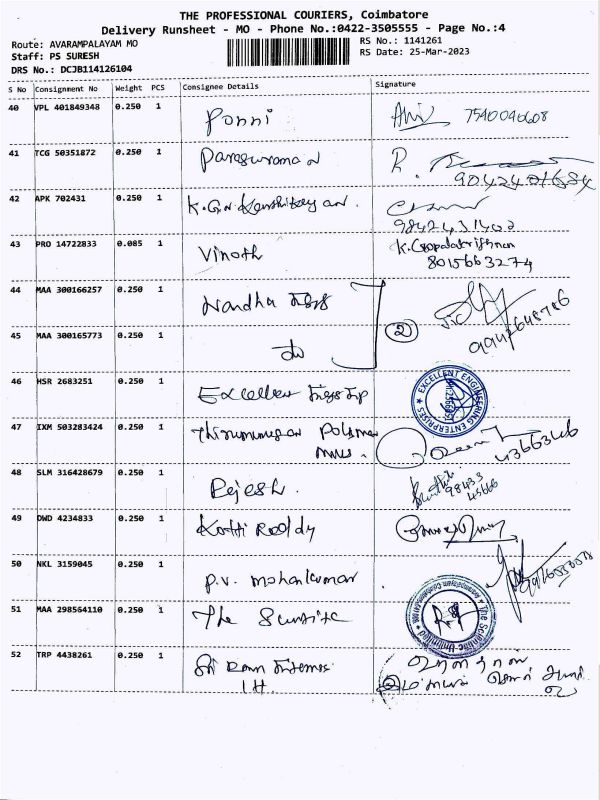 THE PROFESSIONAL COURIERS, Coimbatore
Delivery Runsheet - MO - Phone No.:0422-3505555 - Page No.:4
Route: AVARAMPALAYAM MO
RS No.: 1141261
Staff: PS SURESH
RS Date: 25-Mar-2023
DRS No.: DCJB114126104
S No Consignment No Weight PCS Consignee Details Signature
40 VPL 401849348 0.250 1 Ponni 7540040608
41 TCG 50351872 0.250 1 Parasuraman R.
9042401684
42 APK 702431 0.250 1 K.G.
9842431402
43 PRO 14722833 0.085 1 Vinoth K. Gopalakrishnan
8015663274
44 MAA 300166257 0.250 1 Nandha
2
9942648786
45 MAA 300165773 0.250 1 do
46 HSR 2683251 0.250 1 Excellent
EXCELLENT ENGINEERING ENTERPRISES
47 IXM 503283424 0.250 1 Thirumurugan Polymer
43663446
48 SLM 316428679 0.250 1 Rejesh.
98433
45666
49 DWD 4234833 0.250 1 Kotti Reddy
50 NKL 3159045 0.250 1 P.V. Mohankumar
51 MAA 298564110 0.250 1 The
The Scientific Unlimited
52 TRP 4438261 0.250 1 Sri Ram